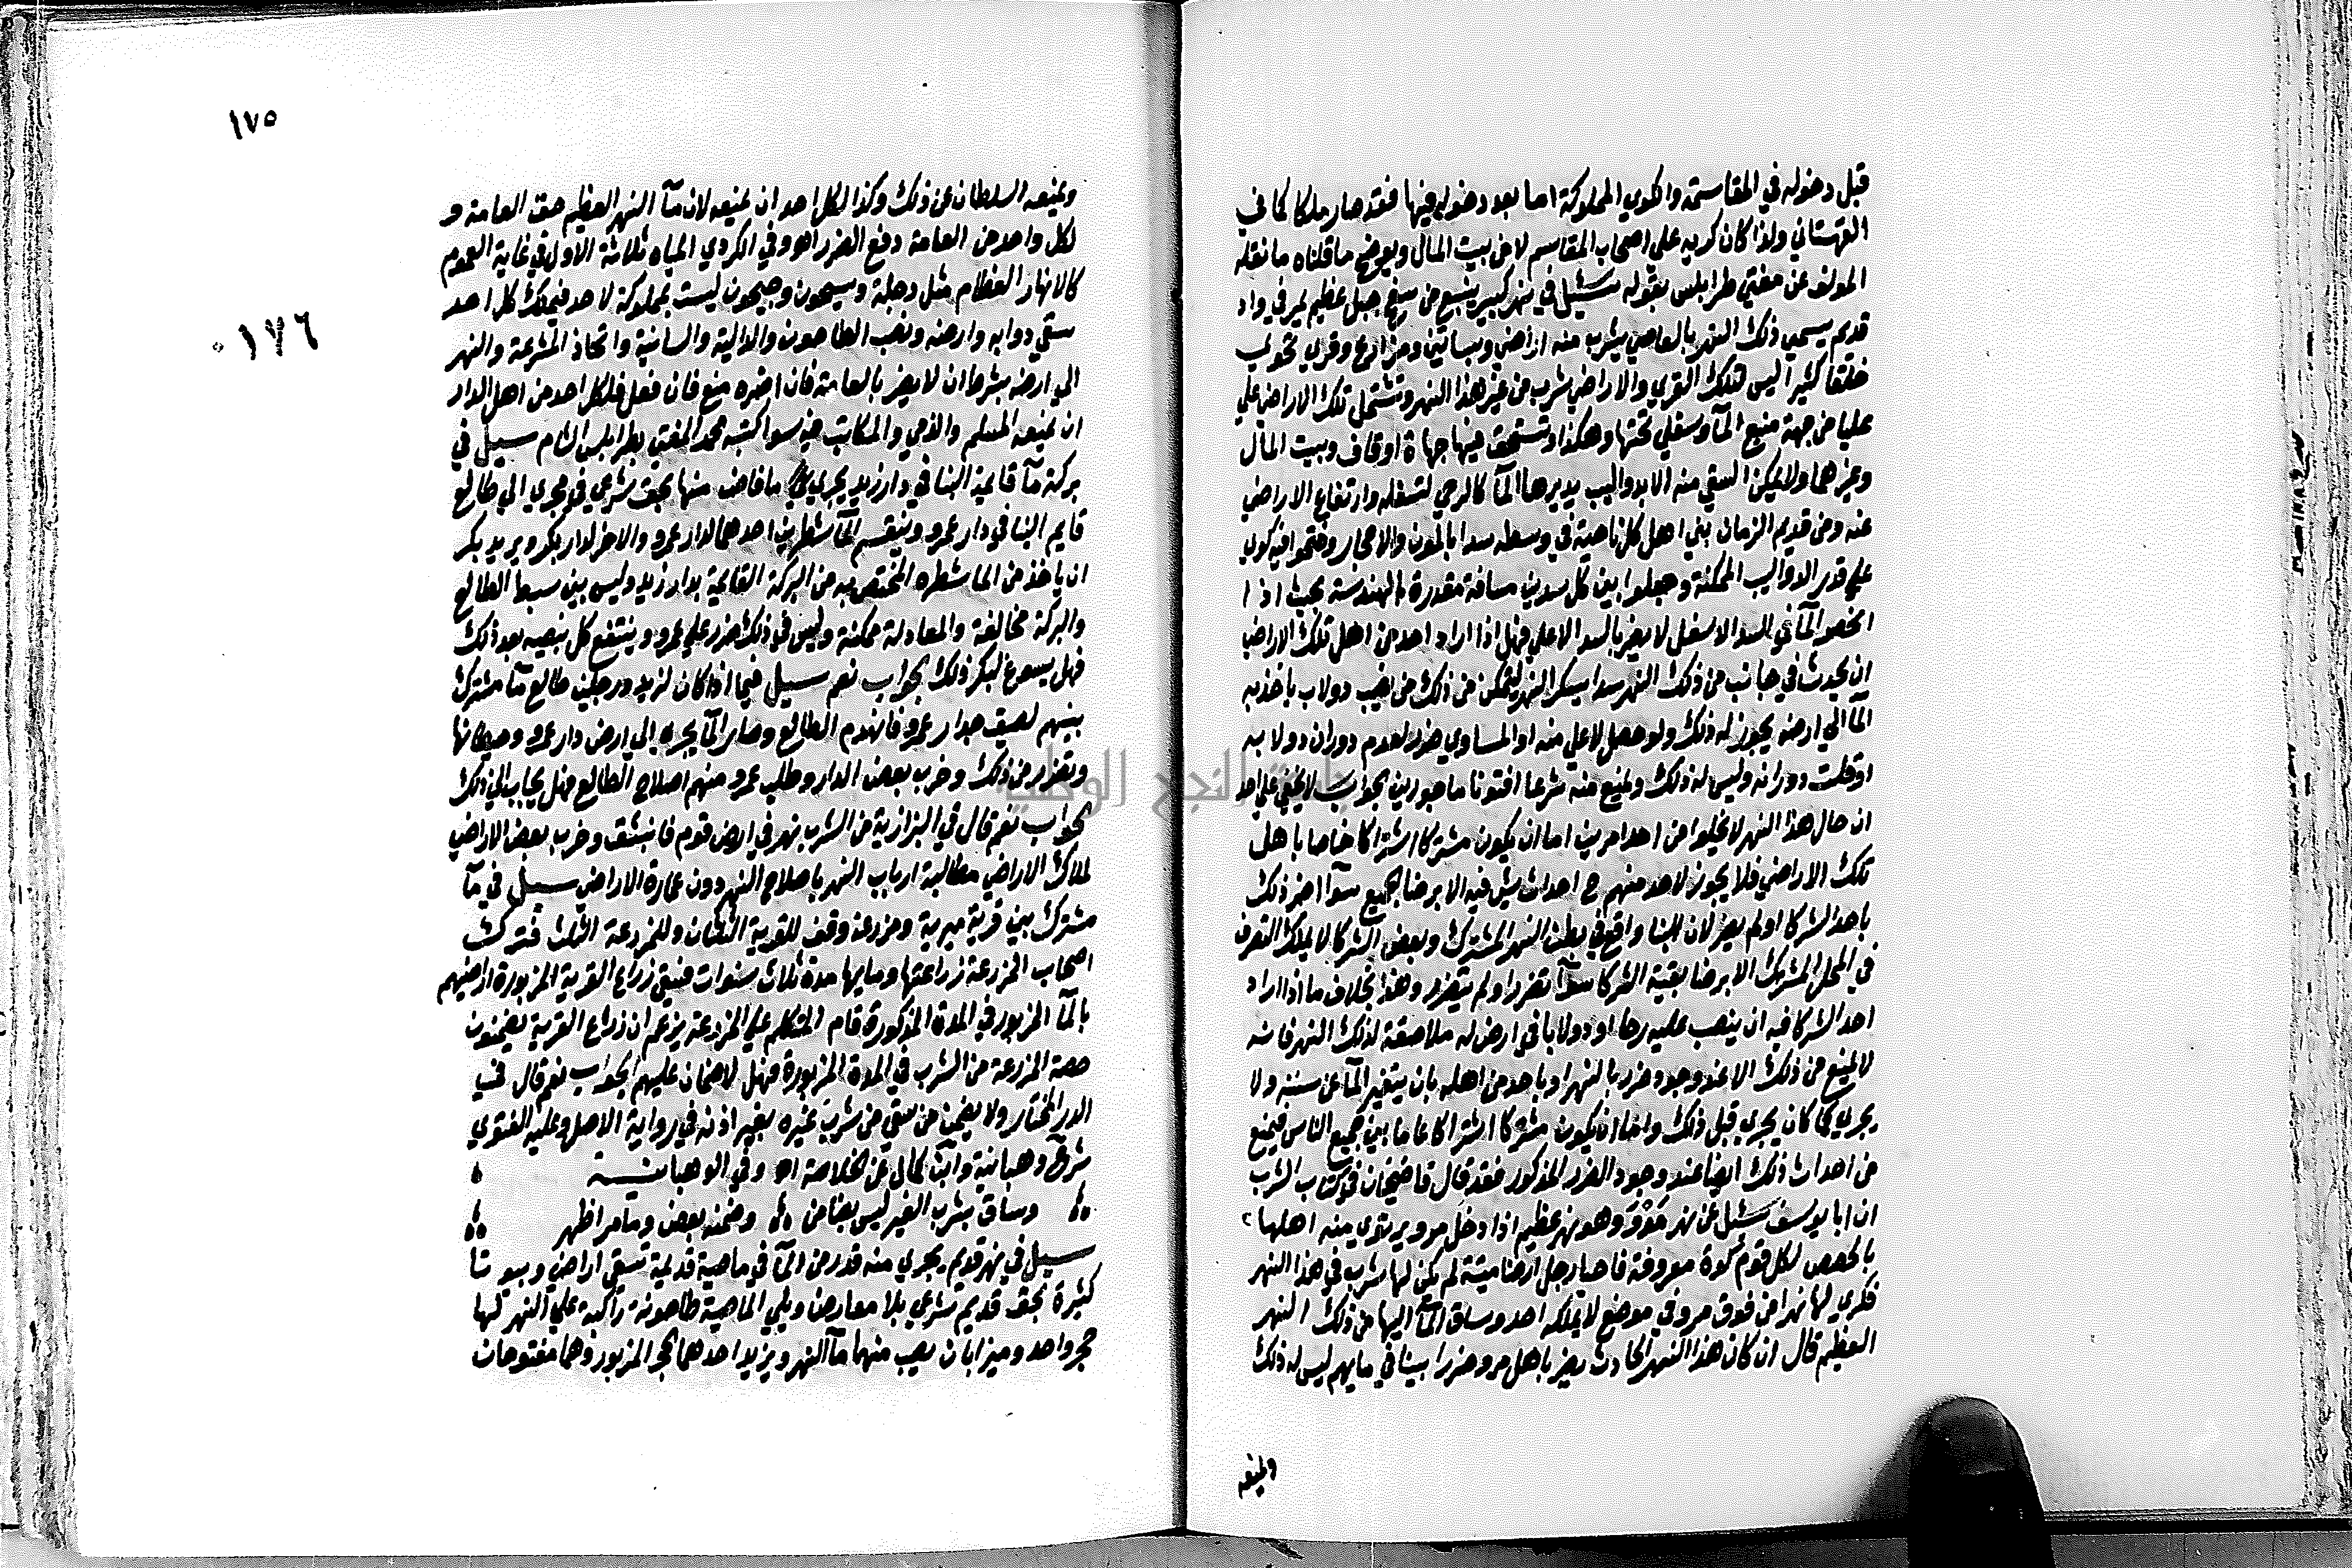 قبل دخوله في المقاسمة والكوي المملوكة اما بعد دخوله فيها فقد صار ملكا كما في
القهستاني ولذا كان كريه على اصحاب المقاسم لا من بيت المال ويوضح ما قلناه ما نقله
المولف عن مفتي طرابلس بقوله سئل في نهر كبير ينبع من سفح جبل عظيم يمر في واد
قديم يسمي ذلك النهر بالعاصي يشرب منه اراضي وبساتين ومزارع وقري تحوي
خلقا كثيرا ليس لتلك القري والاراضي شرب من غير هذا النهر وتشتمل تلك الاراضي علي
عليا من جهة منبع المآ وسفلي تحتها وهكذا وتستحق فيها جهاة اوقاف وبيت المال
وغيرهما ولا يمكن السقي منه الا بدواليب يديرها المآ كالرحي لتسفله وارتفاع الاراضي
عنه ومن قديم الزمان بني اهل كل ناحية في وسطه سدا بالمون والاحجار وفتحوا فيه كوي
علي قدر الدواليب الممكنة وجعلوا بين كل سدين مسافة مقدرة بالهندسة بحيث اذا
انحصر المآ في السد الاسفل لا يضر بالسد الاعلي فهل اذا اراد احد من اهل تلك الاراضي
ان يحدث في جانب من ذلك النهر سدا يسكر النهر ليتمكن من ذلك من نصب دولاب ياخذ به
المآ الي ارضه يجوز له ذلك ولو حصل لاعلي منه او المساوي ضرر لعدم دوران دولابه
او قلت دورانه وليس له ذلك ويمنع منه شرعا افتونا ماجورين الجواب لا يخفي علي احد
ان حال هذا النهر لا يخلوا من احد امرين اما ان يكون مشتركا اشتراكا خاصا باهل
تلك الاراضي فلا يجوز لاحد منهم ح احداث شي فيه الا برضا الجميع سوآ اضر ذلك
باحد الشركا او لم يضر لان البنا واقع في بطن النهر المشترك وبعض الشركا لا يملك التصرف
في المحل المشترك الا برضا بقية الشركا سوآ تضرر او لم يتضرر وهذا بخلاف ما اذا اراد
احد الشركا فيه ان ينصب عليه رحا او دولابا في ارض له ملاصقة لذلك النهر فانه
لا يمنع من ذلك الا عند وجود ضرر بالنهر او باحد من اهله بان يتغير المآ عن سننه ولا
يجري كما كان يجري قبل ذلك واما ان يكون مشتركا اشتراكا عاما بين جميع الناس فيمنع
من احداث ذلك ايضا عند وجود الضرر المذكور فقد قال قاضيخان في كتاب الشرب
ان ابا يوسف سئل عن نهر مرو وهو نهر عظيم اذا دخل مرو يرتوي منه اهلها
بالحصص لكل قوم كوة معروفة فاحيا رجل ارضا ميتة لم يكن لها شرب في هذا النهر
فكري لها نهرا من فوق مرو في موضع لا يملكه احد وساق المآ اليها من ذلك النهر
العظيم قال ان كان هذا النهر الحادث يضر باهل مرو ضررا بينا في مايهم ليس له ذلك
ويمنعه
١٧٥
١٧٦
ويمنعه السلطان عن ذلك وكذا لكل احد ان يمنعه لان مآ النهر العظيم حق العامة و
لكل واحد من العامة دفع الضرر اهـ وفي الكردي المياه ثلاثة الاول في غاية العموم
كالانهار العظام مثل دجلة وسيحون وجيحون ليست بمملوكة لاحد فيملك كل احد
سقي دوابه وارضه ونصب الطاحون والدالية والسانية واتخاذ المشرعة والنهر
الي ارضه بشرط ان لا يضر بالعامة فان اضره منع فان فعل فلكل احد من اهل الدار
ان يمنعه المسلم والذمي والمكاتب فيه سوا كتبه محمد المفتي بطرابلس الشام سيل في
بركة مآ قايمة البنا في دار زيد يجري ما فاض منها بحق شرعي في مجري الي طالع
قايم البنا في دار عمرو وينقسم المآ شطرين احدهما لدار عمرو والاخر لدار بكر ويريد بكر
ان ياخذ من الما شطره المختص به من البركة القايمة بدار زيد وليس بين سبط الطالع
والبركة مخالفة والمعادلة ممكنة وليس في ذلك ضرر علي عمرو وينتفع كل بنصيبه بعد ذلك
فهل يسوغ لبكر ذلك الجواب نعم سيل فيما اذا كان لزيد ورجلين طالع مآ مشترك
بينهم لصيق جدار عمرو فانهدم الطالع وصار المآ يجري الي ارض دار عمرو وحيطانها
وتضرر من ذلك وخرب بعض الدار وطلب عمرو منهم اصلاح الطالع فهل يجاب الي ذلك
الجواب نعم قال في البزازية من الشرب نهر في ارض قوم فانبثق وخرب بعض الاراضي
لملاك الاراضي مطالبة ارباب النهر باصلاح النهر دون عمارة الاراضي سيل في مآ
مشترك بين قرية ميرية ومزرعة وقف للقرية الثلثان وللمزرعة الثلث فترك
اصحاب المزرعة زراعتها ومايها مدة ثلاث سنوات فسقي زراع القرية المزبورة اراضيهم
بالمآ المزبور في المدة المذكورة قام المتكلم علي المزرعة يزعم ان زراع القرية يضمنون
حصة المزرعة من الشرب في المدة المزبورة فهل لا ضمان عليهم الجواب نعم قال في
الدر المختار ولا يضمن من سقي من شرب غيره بغير اذنه في رواية الاصل وعليه الفتوي
شرح وهبانية وابن كمال عن الخلاصة اهـ وفي الوهبانية
وساق بشرب الغير ليس بضامن وضمنه بعض وما مر اظهر
سيل في نهر قديم يجري منه قدر من المآ في ماصية قديمة تسقي اراضي وبيوتا
كثيرة بحق قديم شرعي بلا معارض ويلي الماصية طاحونة راكبة علي النهر لها
حجر واحد وميزابان يصب منهما مآ النهر ويزيد احدهما بحجر المزبور وهما مفتوحان